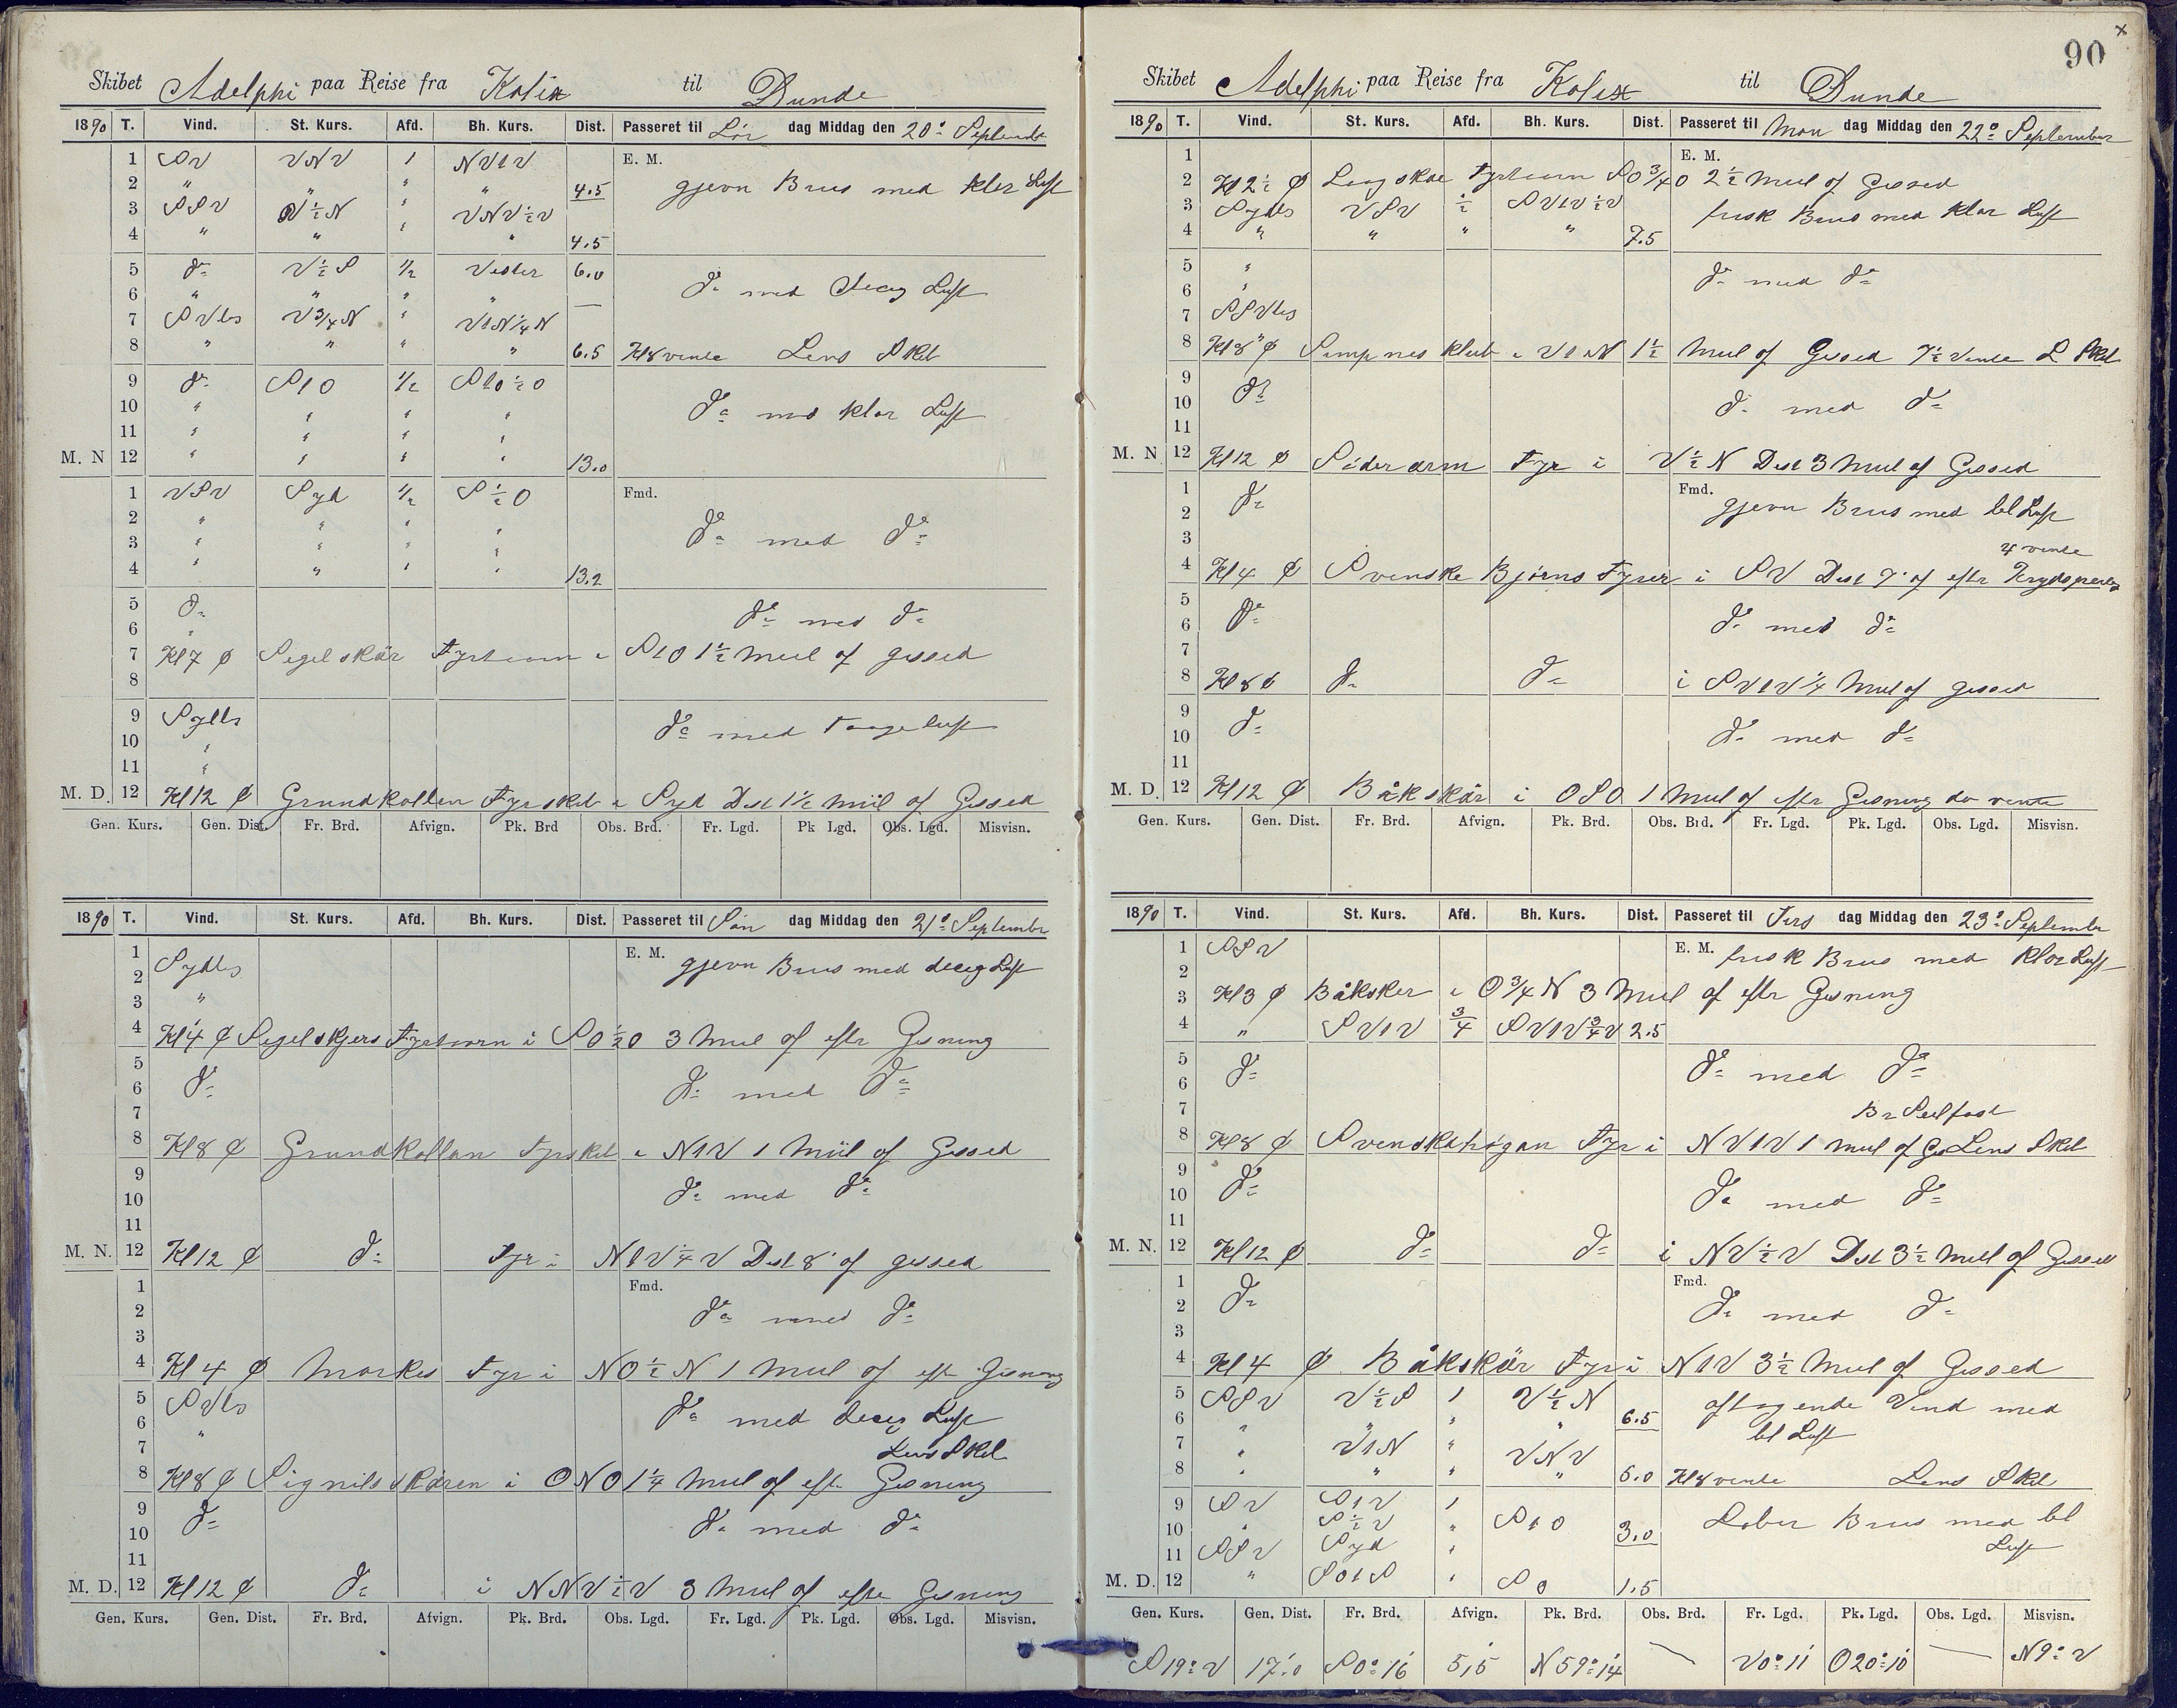 Skibet Adelphi paa Reise fra Kalix til Dunde
1890 T. Vind. St. Kurs. Afd. Bh. Kurs. Dist. Passeret til Lör dag Middag den 20de September
1 SV VNV 1 NV1V E. M.
2 " " " " 4.5 gjevn Bris med klar Luft
3 SSV V½N " VNV½V
4 " " " " 4.5
5 do V½S ½ Vester 6.0
6 " " " " — do med Diceg Luft
7 SVls V¾N " V1N¼N
8 " " " " 6.5 Kl 8 vente Lens Skib
9 do S1O ½ S1O½O
10 " " " " do med klar Luft
11 " " " "
M. N 12 " " " " 13.0
1 VSV Syd ½ S½O Fmd.
2 " " " " do med do
3 " " " "
4 " " " " 13.2
5 do do med do
6 "
7 Kl 7 ¢ Segelskär Fyrtaarn i S1O 1½ Miil af gissed
8
9 Sydls do med Taageluft
10 "
11 "
M. D. 12 Kl 12 ¢ Grundkallen Fyrskib i Syd Dist 1½ Miil af Gissed
Gen. Kurs. Gen. Dist. Fr. Brd. Afvign. Pk. Brd Obs. Brd. Fr. Lgd. Pk Lgd. Obs. Lgd. Misvisn.
1890 T. Vind. St. Kurs. Afd. Bh. Kurs. Dist. Passeret til Sön dag Middag den 21de September
1 Sydls E. M. gjevn Bris med diceg Luft
2
3 "
4 Kl 4 ¢ Segelskjers Fyrtaarn i SO½O 3 Miil af eftr Gisning
5
6 do do med do
7
8 Kl 8 ¢ Grundkallan Fyrskib i N1V 1 Miil af Gissed
9
10 do med do
11
M. N. 12 Kl 12 ¢ do Fyr i N1V¼V Dist 8' af gissed
1 Fmd.
2 do med do
3
4 Kl 4 ¢ Markes Fyr i NO½N 1 Miil af eftr Gisning
5 SVls do med diceg Luft
6 "
7 Lens Skib
8 Kl 8 ¢ Signilsskären i ONO 1¼ Miil af eftr Gisning
9
10 do do med do
11
M. D. 12 Kl 12 ¢ do i NNV½V 3 Miil af eftr Gisning
Gen. Kurs. Gen. Dist. Fr. Brd. Afvign. Pk. Brd. Obs. Lgd. Fr. Lgd. Pk. Lgd. Obs. Lgd. Misvisn.
x
90
Skibet Adelphi paa Reise fra Kalix til Dunde
1890 T. Vind. St. Kurs. Afd. Bh. Kurs. Dist. Passeret til Man dag Middag den 22de September
1 E. M.
2 Kl 2½ ¢ Lagskär Fyrtaarn SO¾O 2½ Miil af Gissed
3 Sydls VSV ½ SV1V½V frisk Bris med klar Luft
4 " " " " 7.5
5 " do med do
6 "
7 SSVls
8 Kl 8 ¢ Simpnesklub i V1N 1½ Miil af Gissed 7½ Vente L Skib
9
10 do do med do
11
M. N 12 Kl 12 ¢ Söderarm Fyr i V½N Dist 3 Miil af Gissed
1 Fmd.
2 do gjevn Bris med bl Luft
3 4 vente
4 Kl 4 ¢ Svenske Björns Fyrer i SV Dist 7' af eftr Krydspeiling
5
6 do do med do
7
8 Kl 8 ¢ do do i SV1V ¼ Miil af gissed
9
10 do do med do
11
M. D. 12 Kl 12 ¢ Båkskär i OSO 1 Miil af eftr Gisning do vente
Gen. Kurs. Gen. Dist. Fr. Brd. Afvign. Pk. Brd. Obs. Brd. Fr. Lgd. Pk. Lgd. Obs. Lgd. Misvisn.
1890 T. Vind. St. Kurs. Afd. Bh. Kurs. Dist. Passeret til Tirs dag Middag den 23de September
1 SSV E. M. frisk Bris med klar Luft
2
3 Kl 3 ¢ Båksker i O¾N 3 Miil af eftr Gisning
4 " SV1V ¾ SV1V¾V 2.5
5
6 do do med do
7 Br Seil fast
8 Kl 8 ¢ Svenskahögan Fyr i NV1V 1 Miil af Gis Lens Skib
9
10 do do med do
11
M. N. 12 Kl 12 ¢ do do i NV½V Dist 3½ Miil af Gissed
1 Fmd.
2 do do med do
3
4 Kl 4 ¢ Båkskär Fyr i N1V 3½ Miil af Gissed
5 SSV V½S 1 V½N aftagende Vind med
6 " " " " 6.5 bl Luft
7 " V1N " VNV
8 " " " " 6.0 Kl 8 vente Lens Skib
9 SV S1V 1
10 " S½V " S1O 3.0 Laber Bris med bl
11 SSV Syd " Luft
M. D. 12 " SO1S " SO 1.5
Gen. Kurs. Gen. Dist. Fr. Brd. Afvign. Pk. Brd. Obs. Brd. Fr. Lgd. Pk. Lgd. Obs. Lgd. Misvisn.
S19°V 17.0 S0°16 5,5 N59°14 — V0°11 O20°10 — N9°V